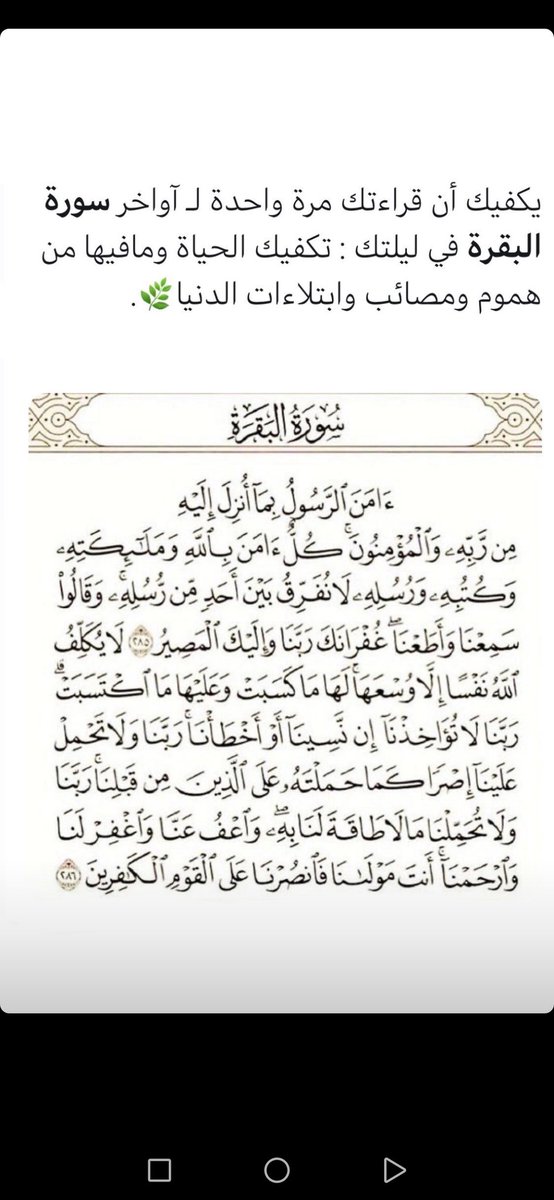 يكفيك أن قراءتك مرة واحدة لـ آواخر سورة
البقرة في ليلتك : تكفيك الحياة ومافيها من
هموم ومصائب وابتلاءات الدنيا🌿.
سُورَةُ البَقَرَةِ
ءَامَنَ ٱلرَّسُولُ بِمَآ أُنزِلَ إِلَيْهِ
مِن رَّبِّهِۦ وَٱلْمُؤْمِنُونَۚ كُلٌّ ءَامَنَ بِٱللَّهِ وَمَلَٰٓئِكَتِهِۦ
وَكُتُبِهِۦ وَرُسُلِهِۦ لَا نُفَرِّقُ بَيْنَ أَحَدٍ مِّن رُّسُلِهِۦۚ وَقَالُوا۟
سَمِعْنَا وَأَطَعْنَاۖ غُفْرَانَكَ رَبَّنَا وَإِلَيْكَ ٱلْمَصِيرُ ٢٨٥ لَا يُكَلِّفُ
ٱللَّهُ نَفْسًا إِلَّا وُسْعَهَاۚ لَهَا مَا كَسَبَتْ وَعَلَيْهَا مَا ٱكْتَسَبَتْۗ
رَبَّنَا لَا تُؤَاخِذْنَآ إِن نَّسِينَآ أَوْ أَخْطَأْنَاۚ رَبَّنَا وَلَا تَحْمِلْ
عَلَيْنَآ إِصْرًا كَمَا حَمَلْتَهُۥ عَلَى ٱلَّذِينَ مِن قَبْلِنَاۚ رَبَّنَا
وَلَا تُحَمِّلْنَا مَا لَا طَاقَةَ لَنَا بِهِۦۖ وَٱعْفُ عَنَّا وَٱغْفِرْ لَنَا
وَٱرْحَمْنَآۚ أَنتَ مَوْلَىٰنَا فَٱنصُرْنَا عَلَى ٱلْقَوْمِ ٱلْكَٰفِرِينَ ٢٨٦